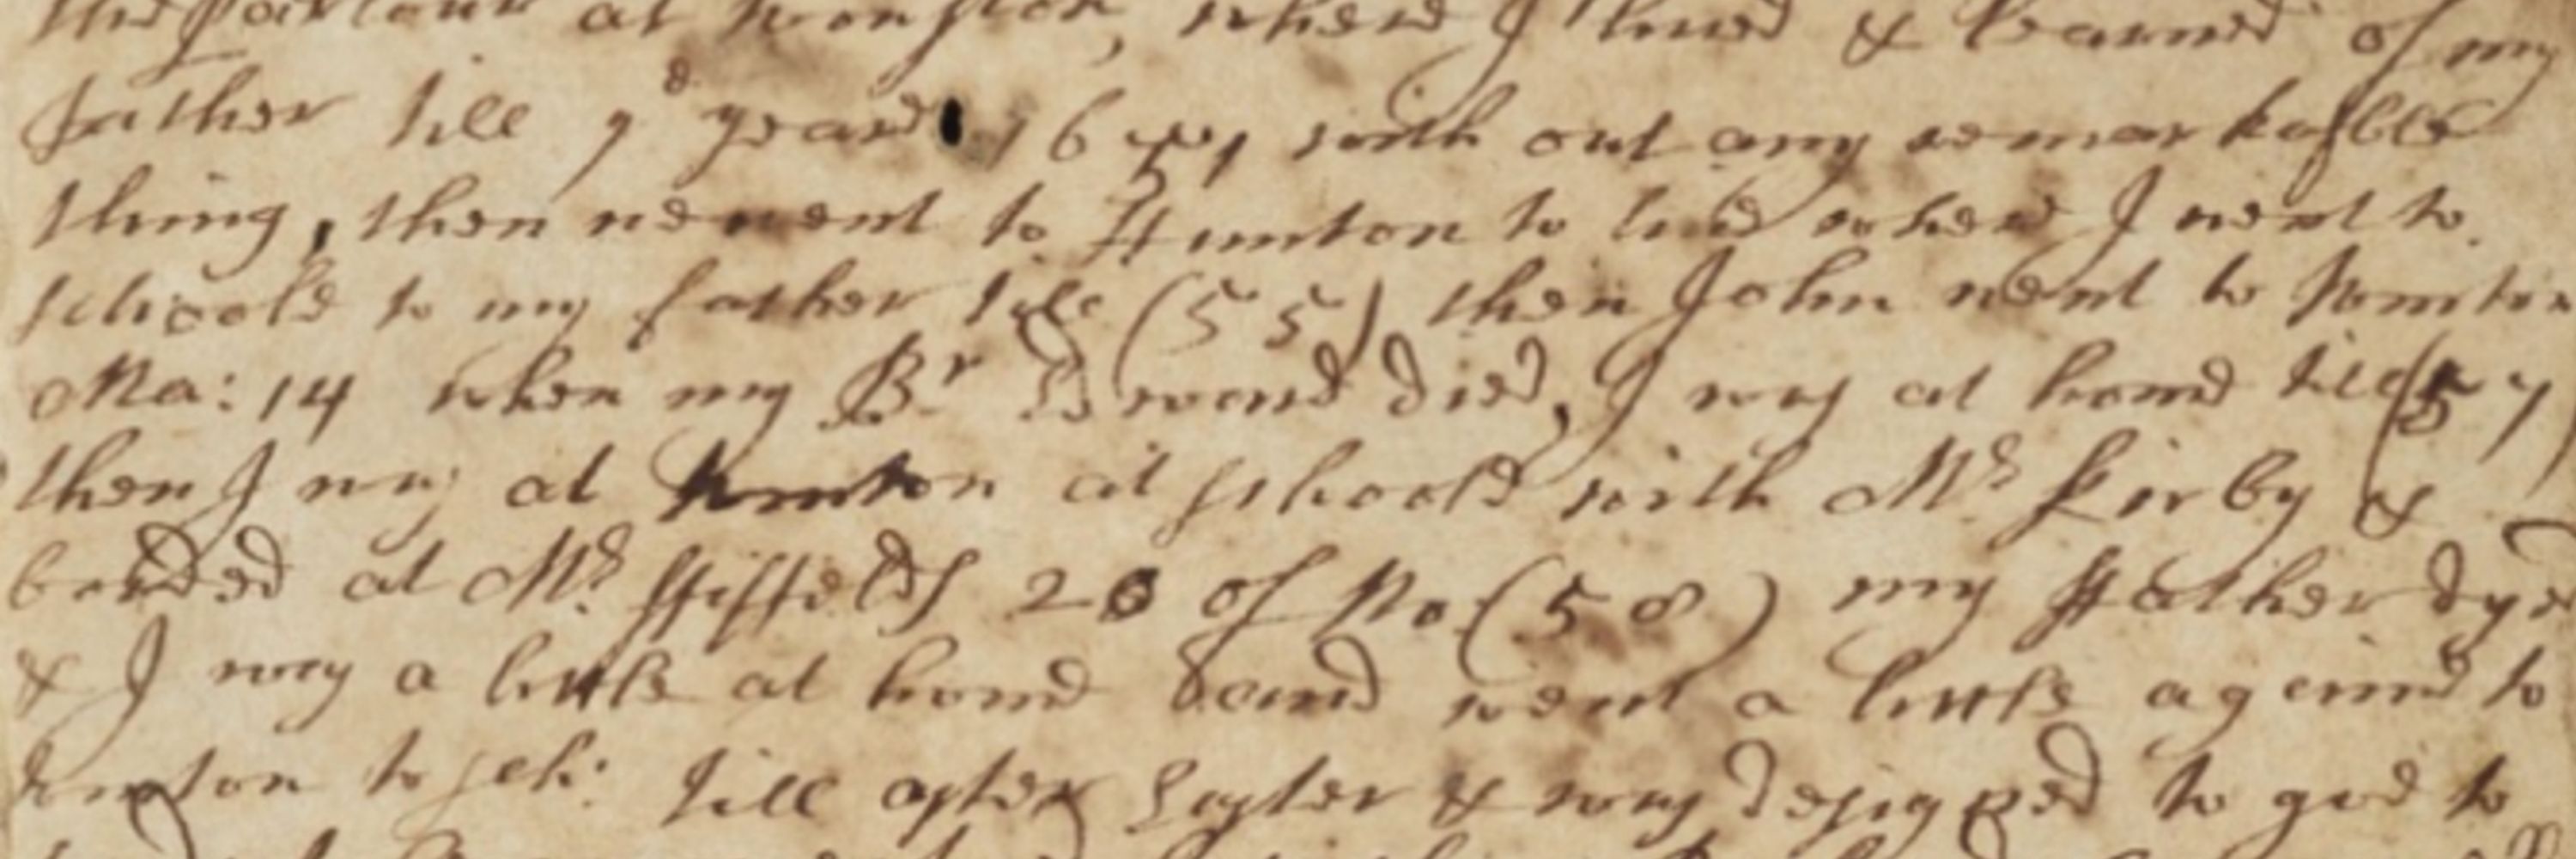 the parlour at Wonston, where I lived & learned of my
father till yᵉ yeare 1651 with out any remarkable
thing, then we went to Hunton to live where I went to
schoole to my father till (55) then John went to Winton
Ma: 14 when my Bʳ Edward died, I was at home till (57)
then I was at Winton at schoole with Mʳ Kirby &
borded at Mʳ ffiffelds 20 of No: (58) my ffather dyed
& I was a little at home and went a little againe to
Winton to sch: till after Easter & was designed to goe to